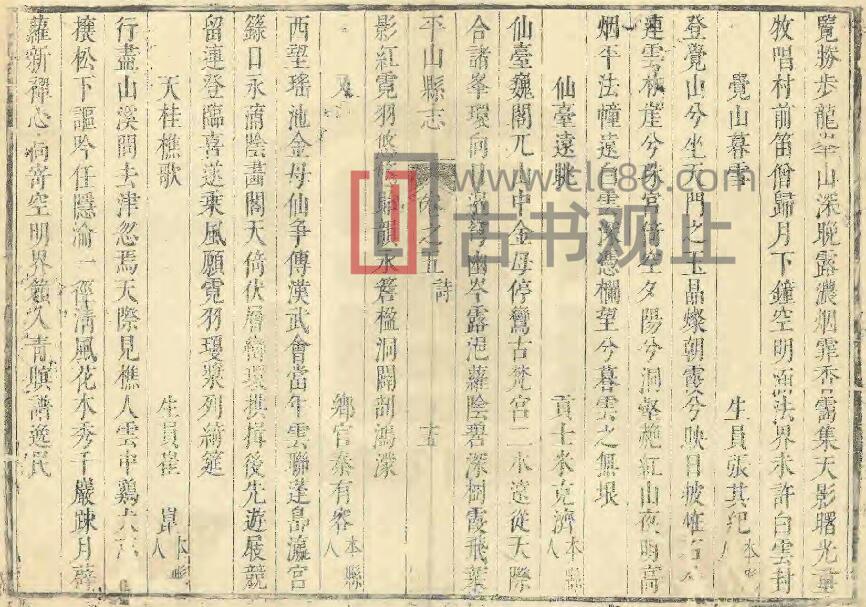 覽勝步龍山深晚露濃烟霏香靄集天影曙光
牧唱村前笛僧歸月下鐘空明法界未許白雲封
覺山暮雪 生員張其紀 本縣人
登覺山兮坐天門之玉晶燦朝霞兮映日披
連雲崖兮珠宮倚空夕陽兮洞壑艷紅山夜明高
烟平法幢遠白雲深憑欄望兮暮雲之無垠
仙臺遠眺 貢士米克濟 本縣人
仙臺巍閣兀山中金母停鸞古梵宮二水遠從天際
合諸峯環向幽岑露浥蘿陰碧深樹霞飛葉
平山縣志 卷之五 詩 十五
影紅霓羽悠歸韻水簷楹洞闢剖鴻濛
又 鄉官秦有容 本縣人
西望瑤池金母仙爭傳漢武會當年雲聯蓬島瀛宮
籙日永蒲陰畫閣天倚伏層巒環拱揖後先遊展競
留連登臨喜遂乘風願霓羽瓊漿列綺筵
天桂樵歌 生員崔 本縣人
行盡山溪問去津忽焉天際見樵人雲中鷄犬
松下謳吟任隱淪一徑清風花木秀千巖踈月薜
蘿新禪心寄空明界籙入青譜逸民
www.clc86.com
古书观止